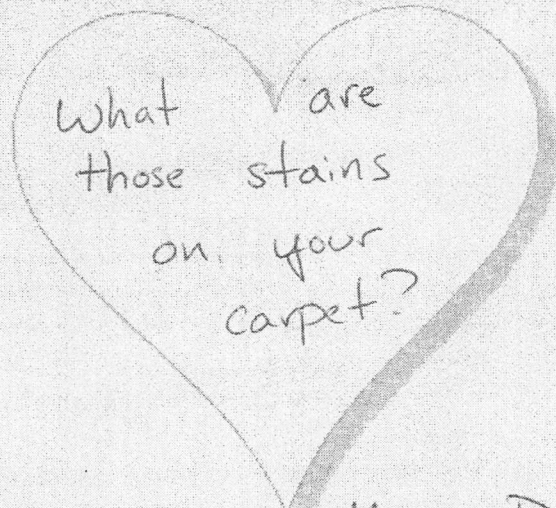 What are
those stains
on your
carpet?